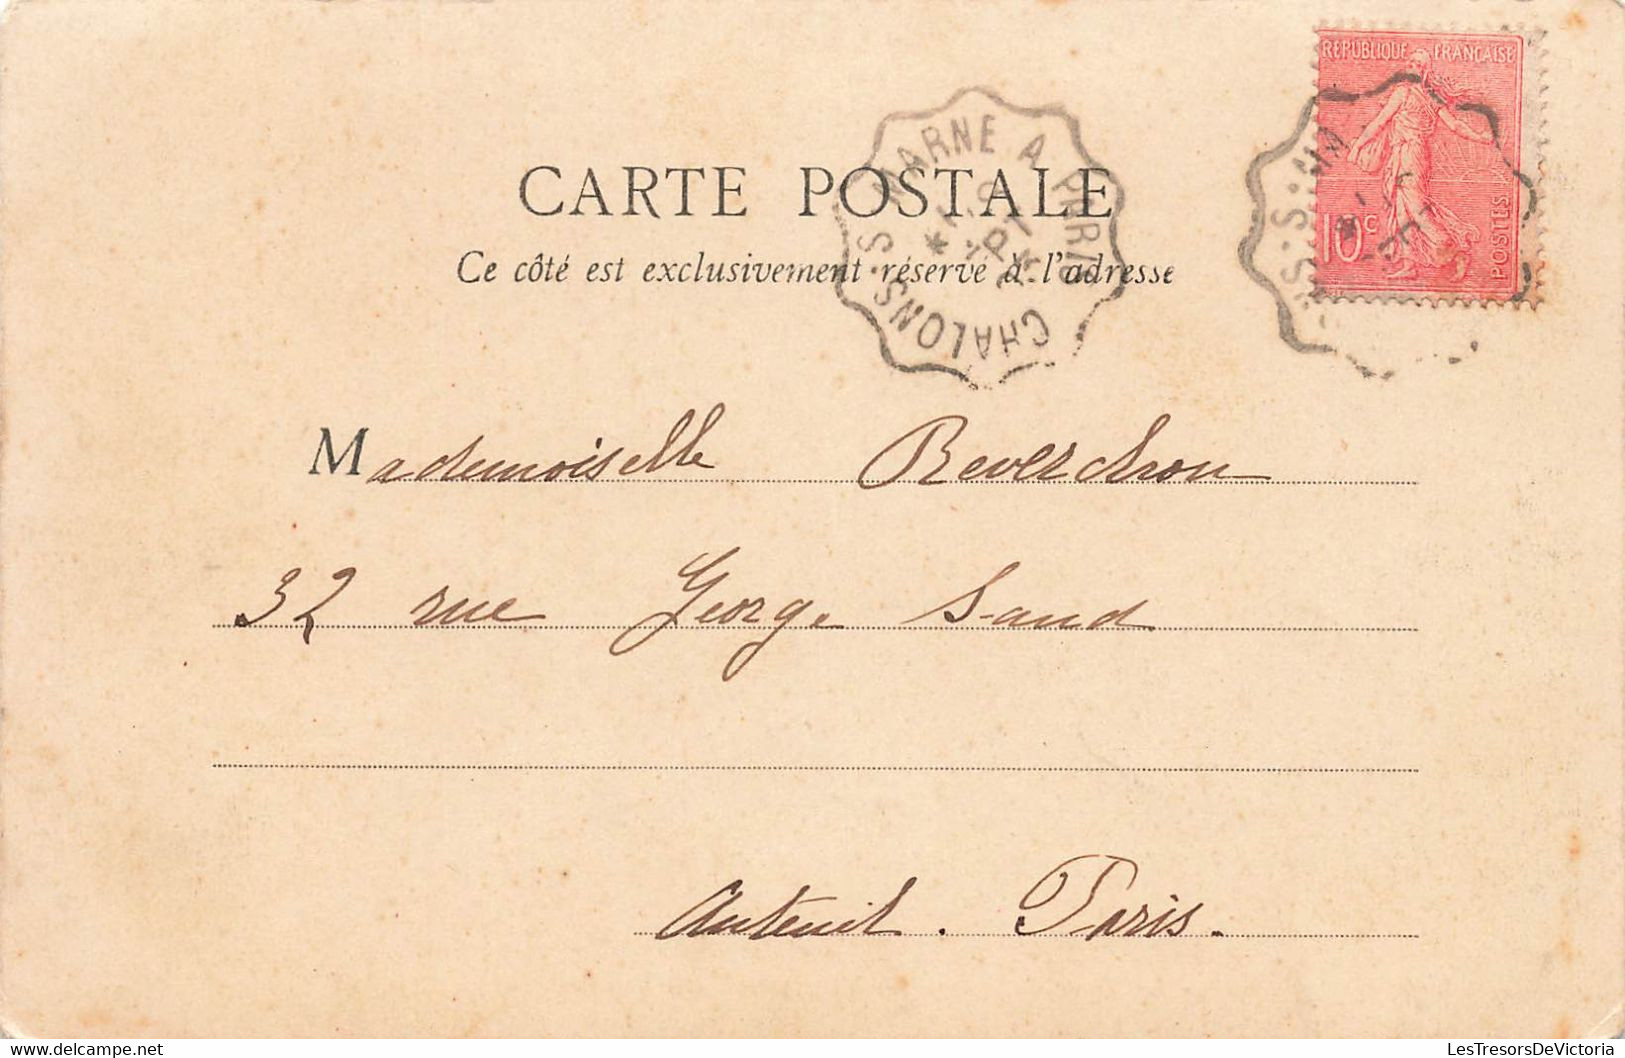 RÉPUBLIQUE FRANÇAISE
10c
POSTES
CHALONS-S-MARNE A PARIS
CARTE POSTALE
Ce côté est exclusivement réservé à l'adresse
Mademoiselle Reverchon
32 rue George Sand
Auteuil. Paris.
LesTresorsDeVictoria